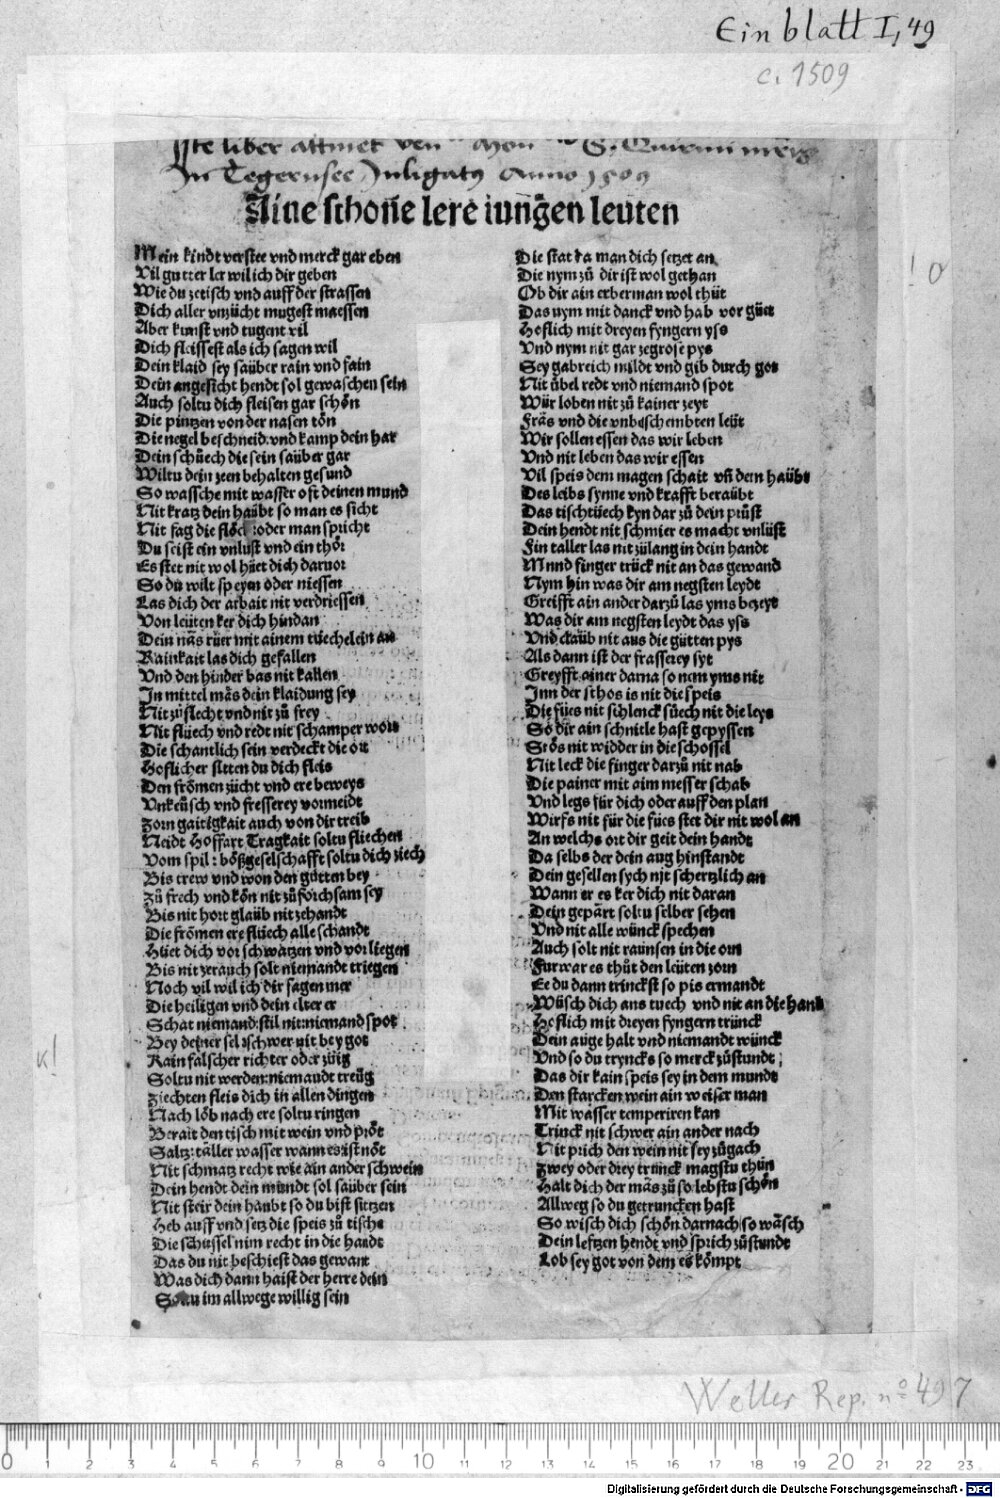 Einblatt I, 49
c. 1509
Iste liber attinet ven Mon S. Quirini
In Tegernsee Inligatus Anno 1509
Aine schone lere iungen leuten
Mein kindt verstee vnd merck gar eben
Vil gutter ler wil ich dir geben
Wie du zetisch vnd auff der strassen
Dich aller vnzücht mugest maessen
Aber kunst vnd tugent vil
Dich fleissest als ich sagen wil
Dein klaid sey saüber rain vnd fain
Dein angesicht hendt sol gewaschen sein
Auch soltu dich fleisen gar schön
Die pintzen von der nasen tön
Die negel beschneid: vnd kamp dein har
Dein schüech die sein saüber gar
Wiltu dein zeen behalten gesund
So wassche mit wasser oft deinen mund
Nit kratz dein haübt so man es sicht
Nit fag die flöch oder man spricht
Du seist ein vnlust vnd ein thör
Es stet nit wol hüet dich daruor
So du wilt speyen oder niessen
Las dich der arbait nit verdriessen
Von leüten ker dich hindan
Dein näs rüer mit ainem tüechelein an
Rainkait las dich gefallen
Vnd den hinder bas nit kallen
In mittel mäs dein klaidung sey
Nit zü slecht vnd nit zü frey
Nit flüech vnd redt nit schamper wort
Die schantlich sein verdeckt die ort
Hoflicher sitten du dich fleis
Den frömen zücht vnd ere beweys
Vnkeüsch vnd fresserey vormeidt
Zorn gaitigkait auch von dir treib
Neidt Hoffart Tragkait soltu fliechen
Vom spil: bößgeselschafft soltu dich ziech
Bis trew vnd won den gütten bey
Zü frech vnd kön nit zü forchsam sey
Bis nit hort glaüb nit zehandt
Die frömen ere flüech alle schandt
Hüet dich vor schwätzen vnd vor liegen
Bis nit zerauch solt niemandt triegen
Noch vil wil ich dir sagen mer
Die heiligen vnd dein elter er
Schat niemand: stil nit: niemand spot
Bey deiner sel schwer nit bey got
Kain falscher richter oder züig
Soltu nit werden: niemandt treüg
Ziechten fleis dich in allen dingen
Nach löb nach ere soltu ringen
Berait den tisch mit wein vnd pröt
Saltz: täller wasser wann es ist nöt
Nit schmatz recht wie ain ander schwein
Dein hendt dein mundt sol saüber sein
Nit steir dein haubt so du bist sitzen
Heb auff vnd setz die speis zü tische
Die schüssel nim recht in die handt
Das du nit beschiest das gewant
Was dich dann haist der herre dein
Soltu im allwege willig sein
Die stat da man dich setzet an
Die nym zü dir ist wol gethan
Ob dir ain erberman wol thüt
Das nym mit danck vnd hab vor güet
Hoflich mit dreyen fyngern yss
Vnd nym nit gar zegrose pys
Sey gabreich mildt vnd gib durch got
Nit übel redt vnd niemand spot
Wür loben nit zü kainer zeyt
Fräs vnd die vnbeschembten leüt
Wir sollen essen das wir leben
Vnd nit leben das wir essen
Vil speis dem magen schait vñ dem haübt
Des leibs synne vnd krafft beraübt
Das tischtüech kyn dar zü dein prüst
Dein hendt nit schmier es macht vnlüst
Ein taller las nit zülang in dein handt
Mund finger trück nit an das gewand
Nym hin was dir am negsten leydt
Greifft ain ander darzü las yms bezeyt
Was dir am negsten leydt das yss
Vnd claüb nit aus die gütten pys
Als dann ist der frasserey syt
Greyfft ainer darna so nem yms nit
Inn der schos is nit die speis
Die fües nit schlenck süech nit die leys
So dir ain schnitle hast gepyssen
Stös nit widder in die schossel
Nit leck die finger darzü nit nab
Die painer mit aim messer schab
Vnd legs für dich oder auff den plan
Wirfs nit für die füес stet dir nit wol an
An welchs ort dir geit dein handt
Da selbs der dein aug hinstandt
Dein gesellen sych nit schertzlich an
Wann er es ker dich nit daran
Dein gepärt soltu selber sehen
Vnd nit alle wünck spechen
Auch solt nit raunsen in die orn
Furwar es thüt den leüten zorn
Ee du dann trinckst so pis ermandt
Wüsch dich ans tuech vnd nit an die hand
Hoflich mit dreyen fyngern trünck
Dein auge halt vnd niemandt wünck
Vnd so du tryncks so merck züstundt
Das dir kain speis sey in dem mundt
Den starcken wein ain weiser man
Mit wasser temperiren kan
Trinck nit schwer ain ander nach
Nit prich den wein nit sey zügach
Zwey oder drey trünck magstu thün
Halt dich der mäs zü so lebstu schön
Allweg so du getruncken hast
So wisch dich schön darnach so wäsch
Dein lefftzen hendt vnd sprich züstundt
Lob sey got von dem es kömpt
Weller Rep. nº 497
0 1 2 3 4 5 6 7 8 9 10 11 12 13 14 15 16 17 18 19 20 21 22 23
Digitalisierung gefördert durch die Deutsche Forschungsgemeinschaft - DFG